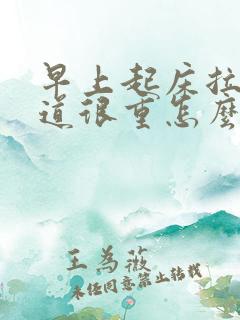 早上起床拉
道很重怎麽
王为薇
未经同意禁止转载